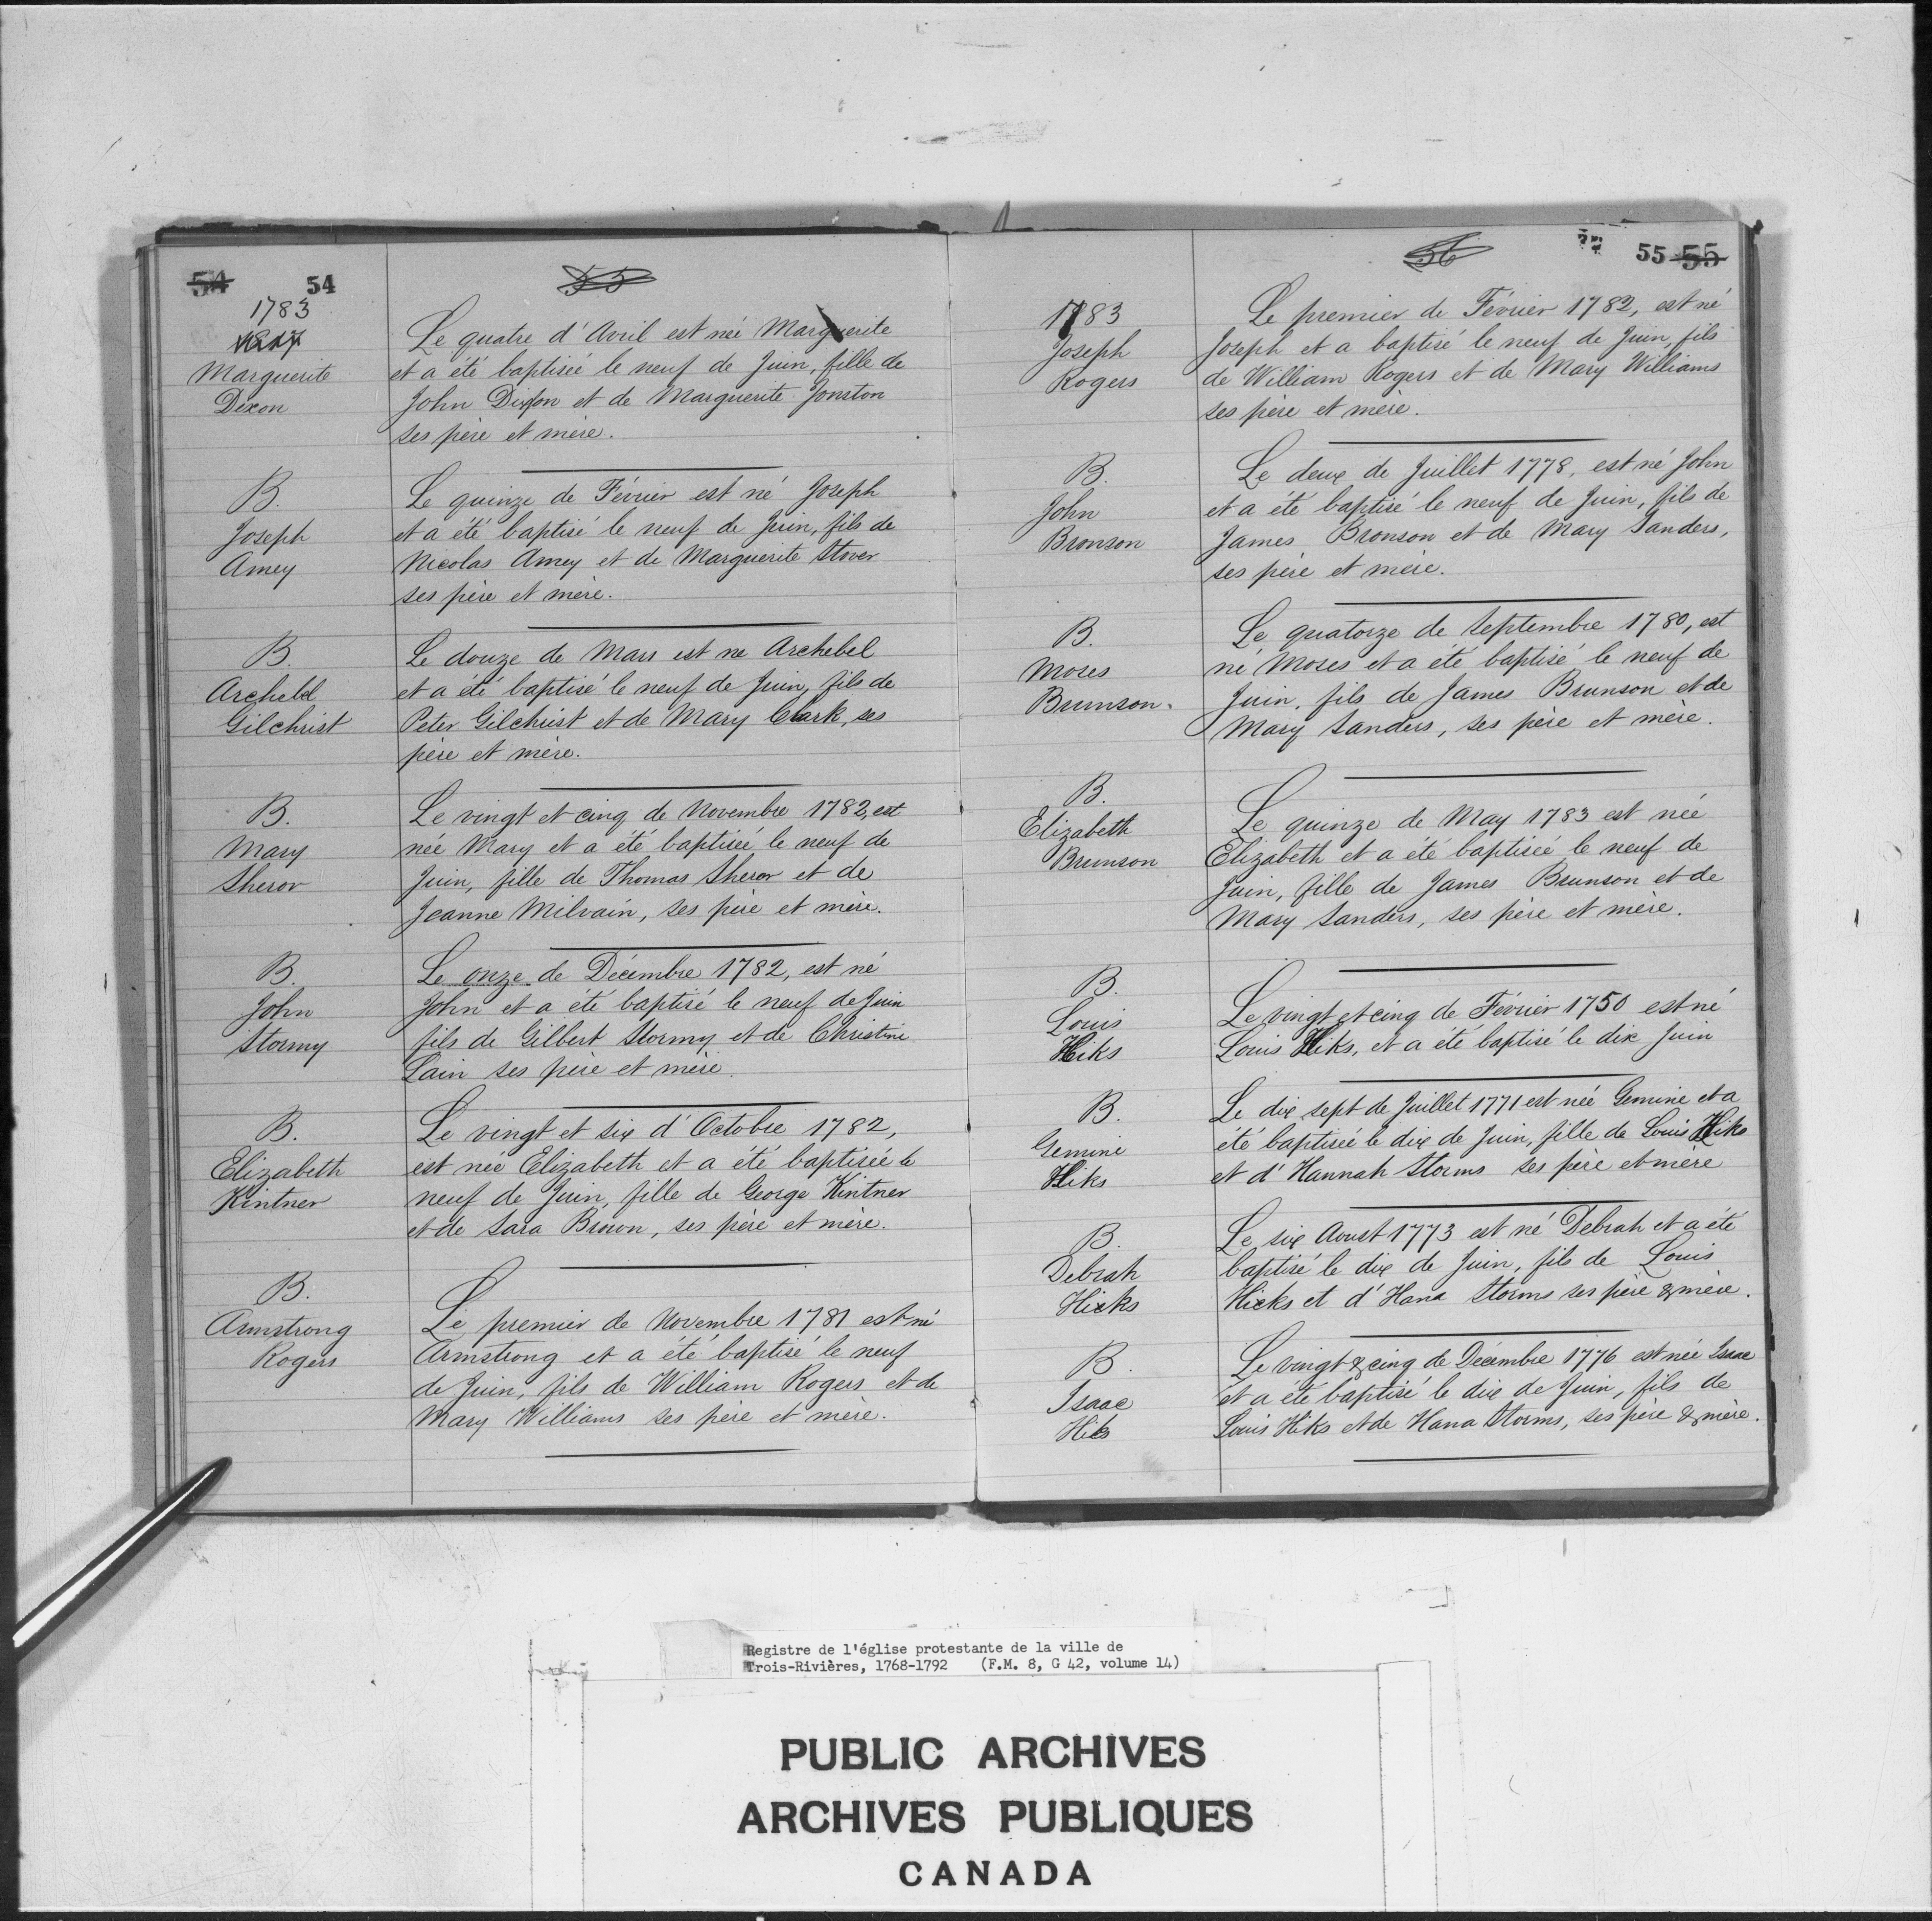 54 54
55
1783
Marguerite
Dixon
Le quatre d'Avril est née Marguerite
et a été baptisée le neuf de Juin, fille de
John Dixon et de Marguerite Jonston
ses père et mère.
B.
Joseph
Amey
Le quinze de Février est né Joseph
et a été baptisé le neuf de Juin, fils de
Nicolas Amey et de Marguerite Stover
ses père et mère.
B.
Archebel
Gilchrist
Le douze de Mars est ne Archebel
et a été baptisé le neuf de Juin, fils de
Peter Gilchrist et de Mary Clark, ses
père et mère.
B.
Mary
Sheror
Le vingt et cinq de Novembre 1782, est
née Mary et a été baptisée le neuf de
Juin, fille de Thomas Sheror et de
Jeanne Milvain, ses père et mère.
B.
John
Stormy
Le onze de Décembre 1782, est né
John et a été baptisé le neuf de Juin
fils de Gilbert Stormy et de Christine
Lain ses père et mère.
B.
Elizabeth
Kintner
Le vingt et six d'Octobre 1782,
est née Elizabeth et a été baptisée le
neuf de Juin, fille de George Kintner
et de Sara Brown, ses père et mère.
B.
Armstrong
Rogers
Le premier de Novembre 1781 est né
Armstrong et a été baptisé le neuf
de Juin, fils de William Rogers et de
Mary Williams ses père et mère.
56
55 55
1783
Joseph
Rogers
Le premier de Février 1782, est né
Joseph et a baptisé le neuf de Juin, fils
de William Rogers et de Mary Williams
ses père et mère.
B.
John
Bronson
Le deux de Juillet 1778, est né John
et a été baptisé le neuf de Juin, fils de
James Bronson et de Mary Sanders,
ses père et mère.
B.
Moses
Brunson.
Le quatorze de Septembre 1780, est
né Moses et a été baptisé le neuf de
Juin, fils de James Brunson et de
Mary Sanders, ses père et mère.
B.
Elizabeth
Brunson
Le quinze de May 1783 est née
Elizabeth et a été baptisée le neuf de
Juin, fille de James Brunson et de
Mary Sanders, ses père et mère.
B.
Louis
Hiks
Le vingt et cinq de Février 1750 est né
Louis Hiks, et a été baptisé le dix Juin
B.
Gemine
Hiks
Le dix sept de Juillet 1771 est née Gemine et a
été baptisée le dix de Juin, fille de Louis Hiks
et d'Hannah Storms ses père et mère
B.
Debrah
Hicks
Le six Aoust 1773 est né Debrah et a été
baptisé le dix de Juin, fils de Louis
Hicks et d'Hana Storms ses père & mère.
B.
Isaac
Hiks
Le vingt & cinq de Décembre 1776 est née Isaac
et a été baptisé le dix de Juin, fils de
Louis Hiks et de Hana Storms, ses père & mère.
Registre de l'église protestante de la ville de
Trois-Rivières, 1768-1792 (F.M. 8, G 42, volume 14)
PUBLIC ARCHIVES
ARCHIVES PUBLIQUES
CANADA